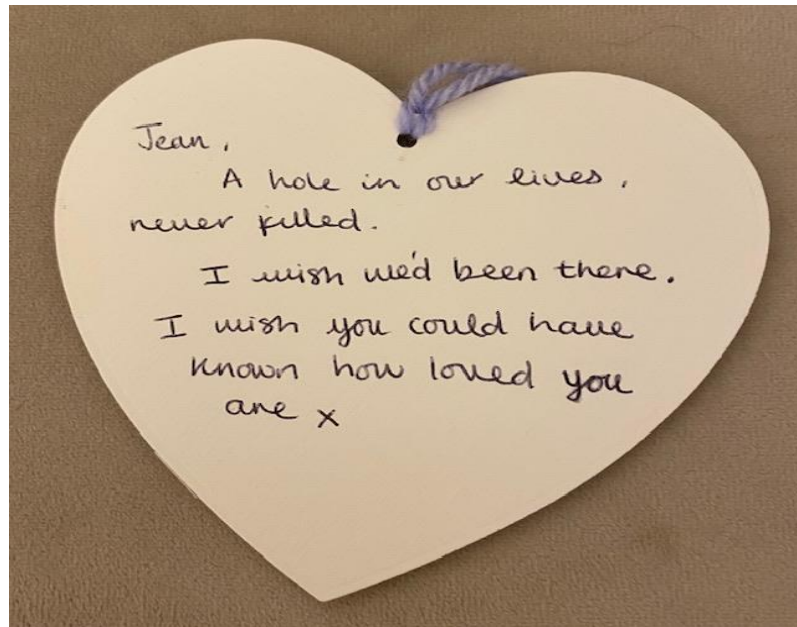 Jean,
A hole in our lives,
never filled.
I wish we'd been there.
I wish you could have
known how loved you
are x